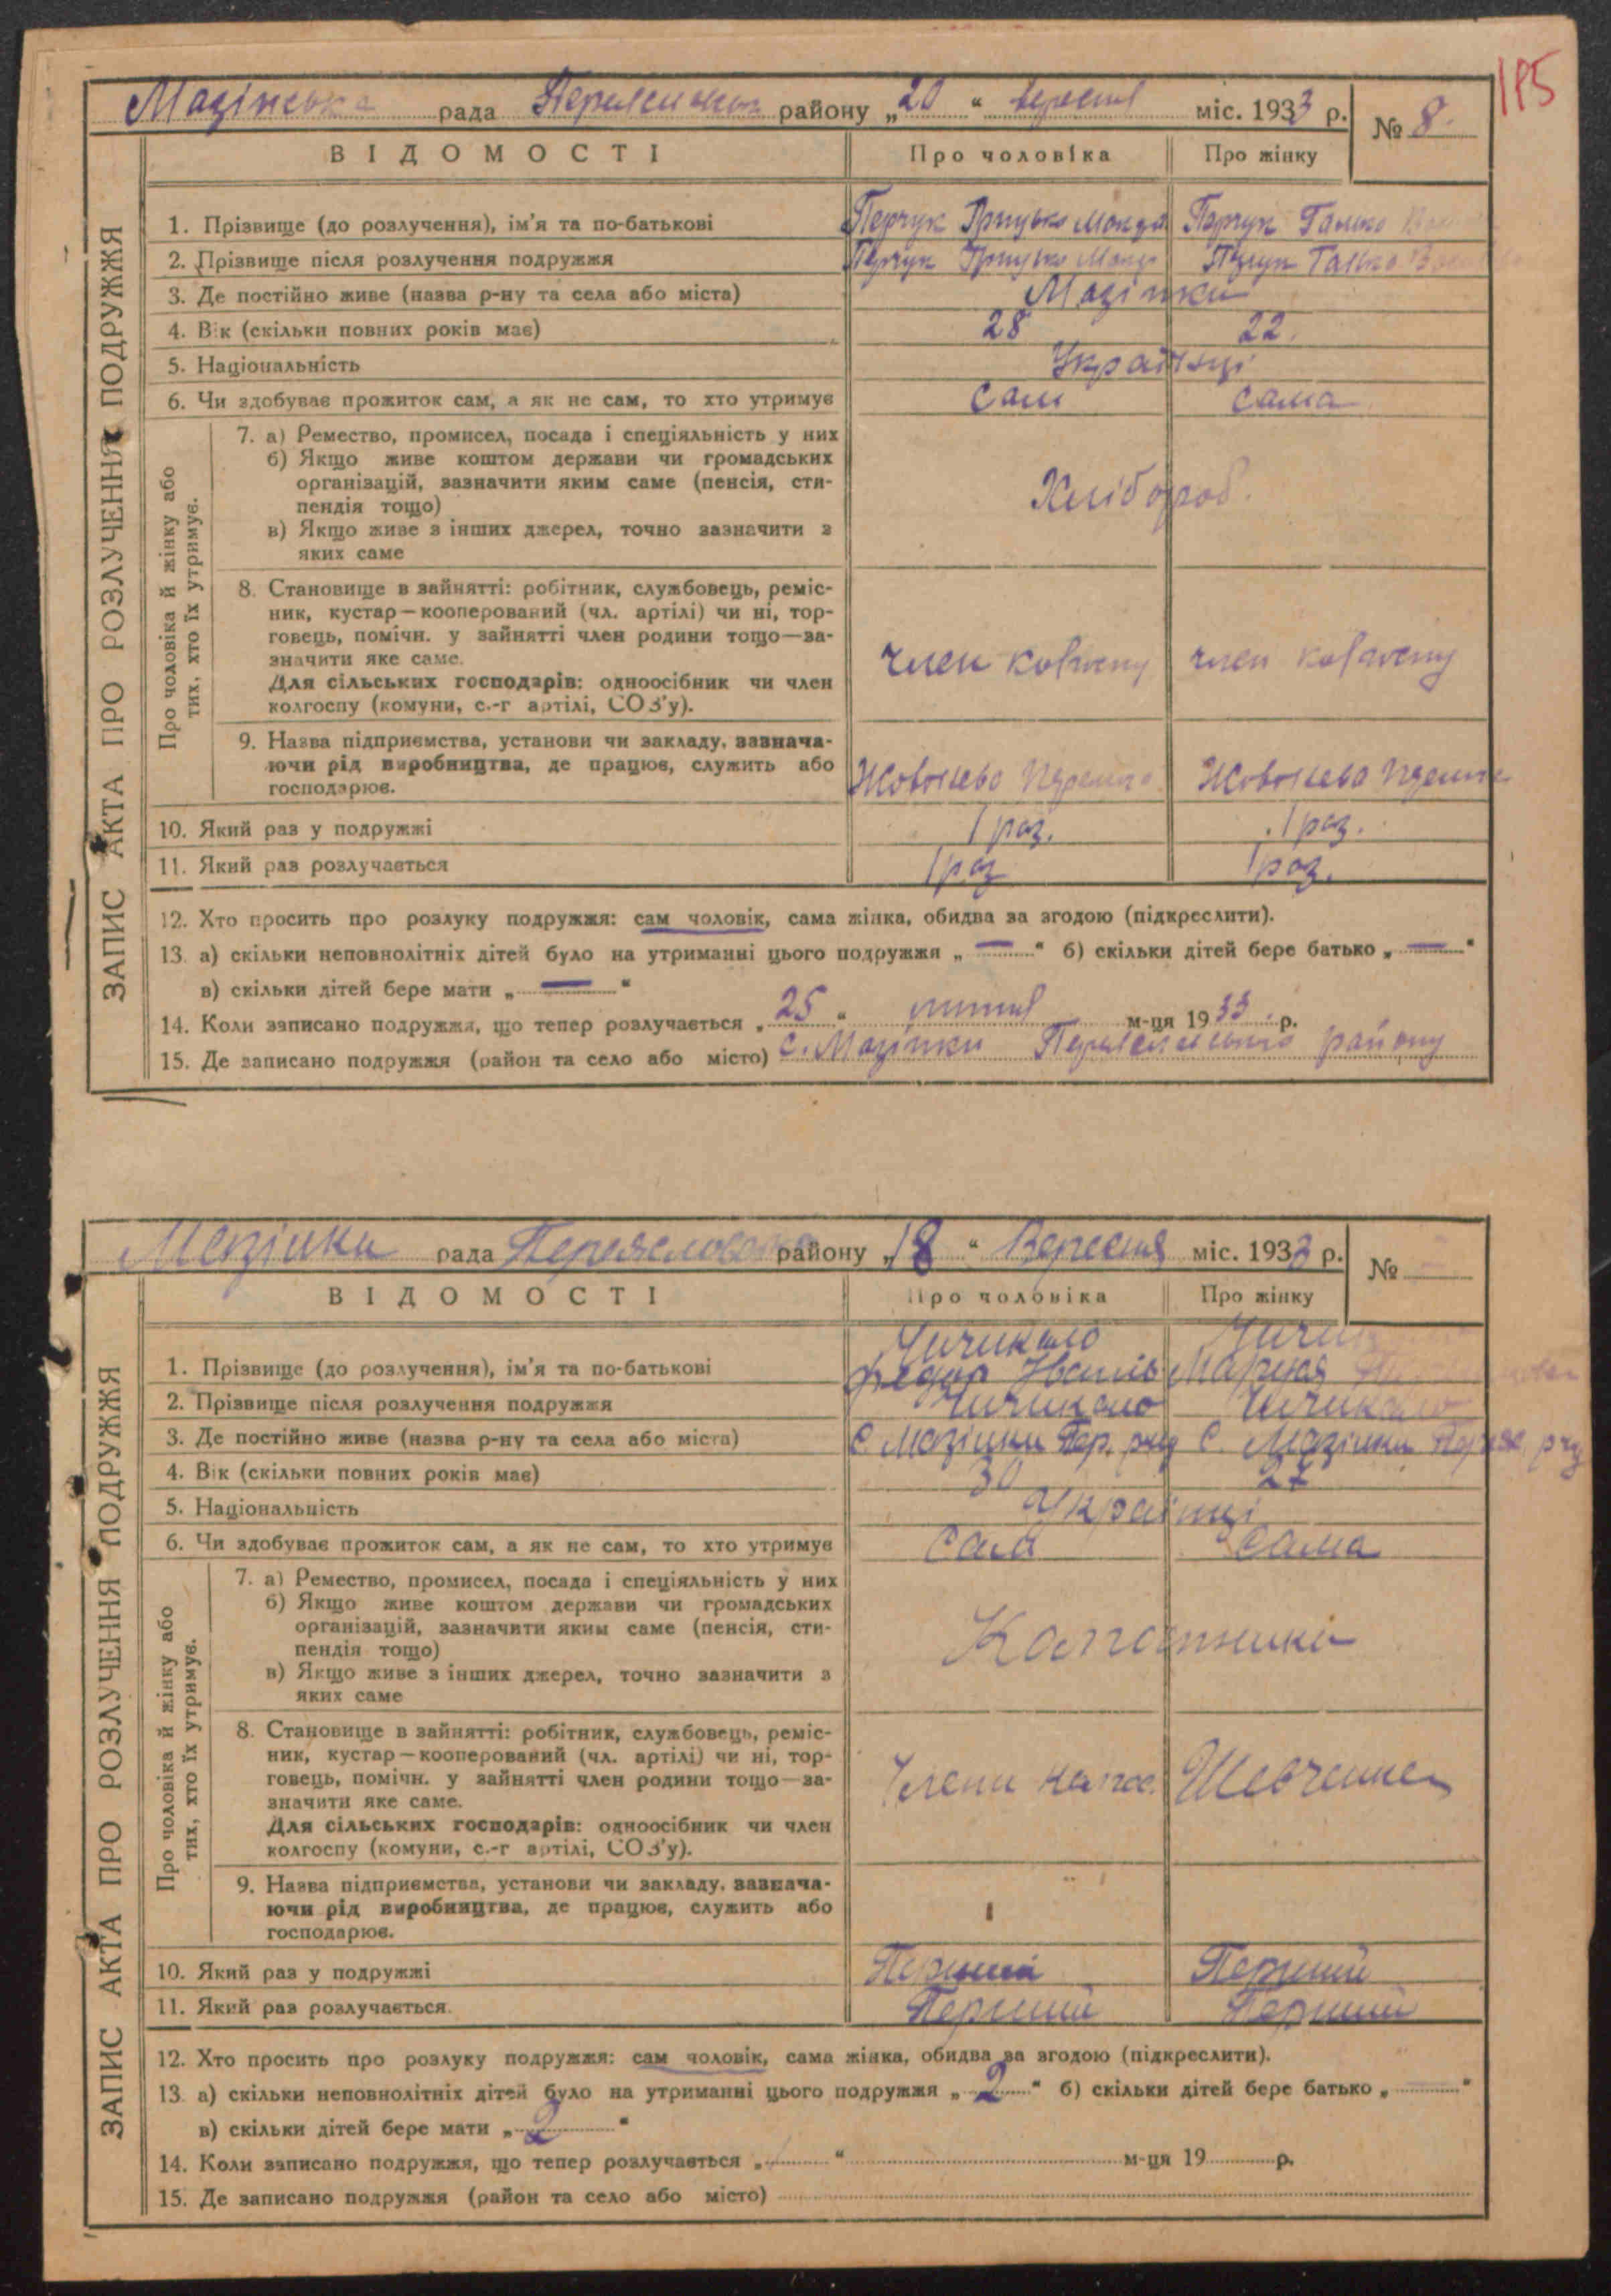 185
Мазінська рада Переяславськ району „20“ вересня міс. 1933 р. № 8.
ВІДОМОСТІ Про чоловіка Про жінку
ЗАПИС АКТА ПРО РОЗЛУЧЕННЯ ПОДРУЖЖЯ
1. Прізвище (до розлучення), ім'я та по-батькові Перчук Грицько Перчук Галько
2. Прізвище після розлучення подружжя Перчук Грицько Галько
3. Де постійно живе (назва р-ну та села або міста) Мазінки
4. Вік (скільки повних років має) 28 22.
5. Національність Українці
6. Чи здобуває прожиток сам, а як не сам, то хто утримує Сам Сама
Про чоловіка й жінку або тих, хто їх утримує.
7. а) Ремество, промисел, посада і спеціяльність у них
б) Якщо живе коштом держави чи громадських
організацій, зазначити яким саме (пенсія, сти-
пендія тощо) Хлібороб.
в) Якщо живе з інших джерел, точно зазначити з
яких саме
8. Становище в зайнятті: робітник, службовець, реміс-
ник, кустар—кооперований (чл. артілі) чи ні, тор-
говець, помічн. у зайнятті член родини тощо—за-
значити яке саме. член член
Для сільських господарів: одноосібник чи член
колгоспу (комуни, с.-г артілі, СОЗ'у).
9. Назва підприємства, установи чи закладу, зазнача-
ючи рід виробництва, де працює, служить або
господарює.
10. Який раз у подружжі 1 раз. 1 раз.
11. Який раз розлучається 1 раз 1 раз.
12. Хто просить про розлуку подружжя: сам чоловік, сама жінка, обидва за згодою (підкреслити).
13. а) скільки неповнолітніх дітей було на утриманні цього подружжя „—“ б) скільки дітей бере батько „—“
в) скільки дітей бере мати „—“
14. Коли записано подружжя, що тепер розлучається „25“ м-ця 1933 р.
15. Де записано подружжя (район та село або місто) с. Мазінки Переяславського району
Мазінки рада Переяславськ району „18“ Вересня міс. 1933 р. №
ВІДОМОСТІ Про чоловіка Про жінку
ЗАПИС АКТА ПРО РОЗЛУЧЕННЯ ПОДРУЖЖЯ
Чичикало
1. Прізвище (до розлучення), ім'я та по-батькові Федор Іванів Маруся
2. Прізвище після розлучення подружжя Чичикало Чичикало
3. Де постійно живе (назва р-ну та села або міста) С Мазінки Пер. р-ну С. Мазінки Переяс. р-ну
4. Вік (скільки повних років має) 30 27
5. Національність Українці
6. Чи здобуває прожиток сам, а як не сам, то хто утримує Сам Сама
Про чоловіка й жінку або тих, хто їх утримує.
7. а) Ремество, промисел, посада і спеціяльність у них
б) Якщо живе коштом держави чи громадських
організацій, зазначити яким саме (пенсія, сти-
пендія тощо)
в) Якщо живе з інших джерел, точно зазначити з
яких саме
8. Становище в зайнятті: робітник, службовець, реміс-
ник, кустар—кооперований (чл. артілі) чи ні, тор-
говець, помічн. у зайнятті член родини тощо—за-
значити яке саме. Члени Шевченка
Для сільських господарів: одноосібник чи член
колгоспу (комуни, с.-г артілі, СОЗ'у).
9. Назва підприємства, установи чи закладу, зазнача-
ючи рід виробництва, де працює, служить або
господарює.
10. Який раз у подружжі Перший Перший
11. Який раз розлучається. Перший Перший
12. Хто просить про розлуку подружжя: сам чоловік, сама жінка, обидва за згодою (підкреслити).
13. а) скільки неповнолітніх дітей було на утриманні цього подружжя „2“ б) скільки дітей бере батько „“
в) скільки дітей бере мати „2“
14. Коли записано подружжя, що тепер розлучається „“ м-ця 19 р.
15. Де записано подружжя (район та село або місто)